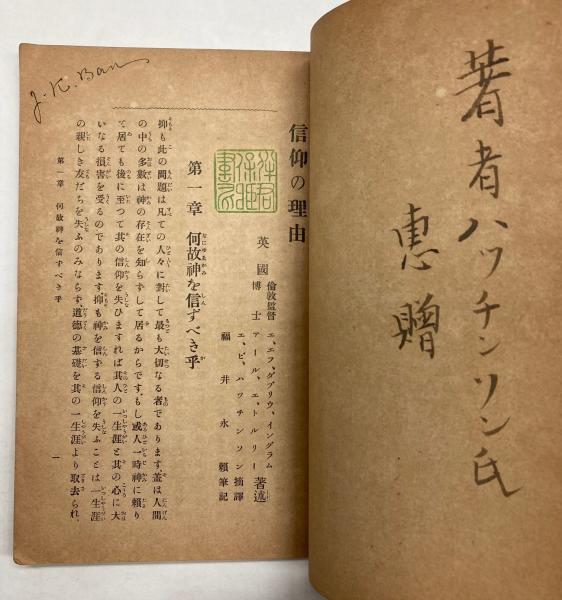 著者ハッチンソン氏
惠贈
信仰の理由
英國
倫敦監督 エ、エフ、ダブリウ、イングラム
博士 アール、エトルリー 著述
エ、ビ、ハッチンソン 摘譯
福井永賴 筆記
第一章 何故神を信ずべき乎
抑も此の問題は凡ての人々に對して最も大切なる者であります、蓋は人間
の中の多數は神の存在を知らずして居るからです、もし或人一時神に賴り
て居ても後に至つて其の信仰を失ひますれば其人の一生涯と其の心に大
いなる損害を受るのであります抑も神を信ずる信仰を失ふことは一生涯
の親しき友だちを失ふのみならず、道德の基礎を其の一生涯より取去られ、
第一章 何故神を信ずべき乎
一
J. K. Ban